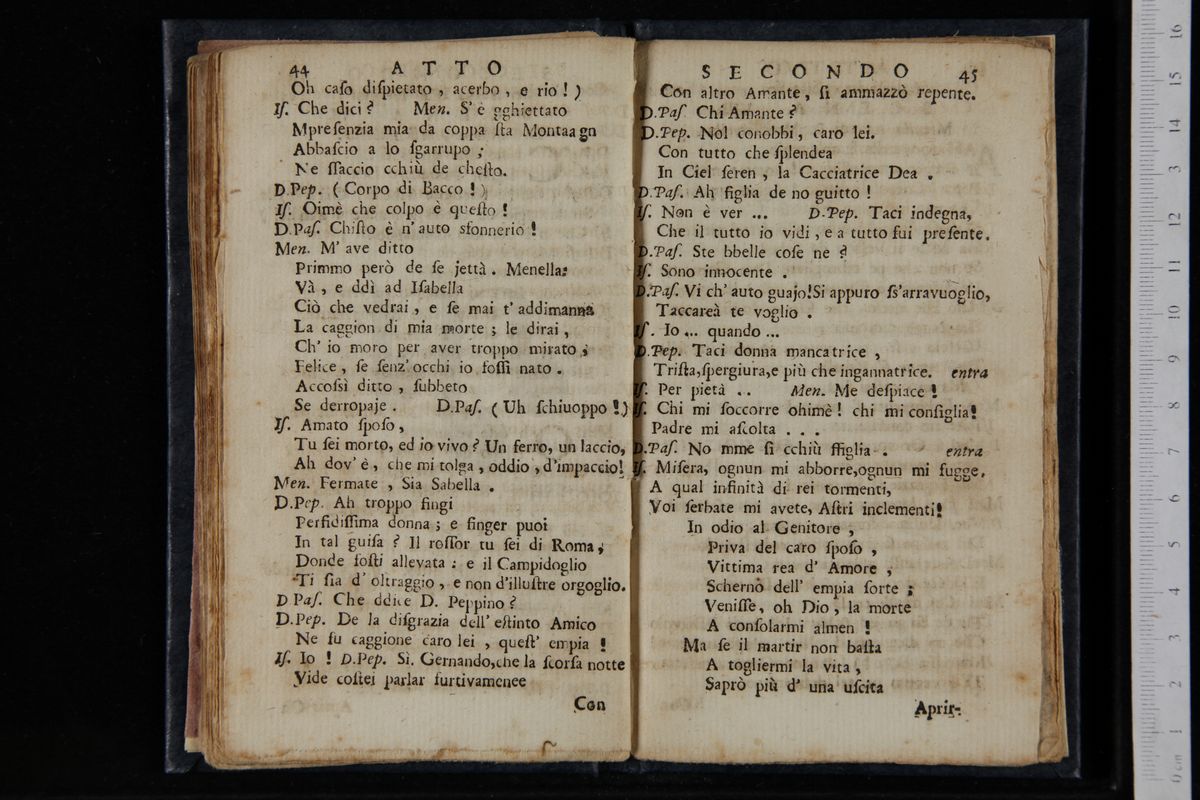 44 ATTO
Oh caſo diſpietato, acerbo, e rio! )
Iſ. Che dici? Men. S'è gghiettato
Mpreſenzia mia da coppa ſta Montaagn
Abbaſcio a lo ſgarrupo;
Ne ſſaccio cchiù de cheſto.
D.Pep. (Corpo di Bacco!)
Iſ. Oimè che colpo è queſto!
D.Paſ. Chiſto è n'auto sfonnerio!
Men. M'ave ditto
Primmo però de ſe jettà. Menella:
Và, e ddì ad Iſabella
Ciò che vedrai, e ſe mai t'addimanna
La caggion di mia morte; le dirai,
Ch'io moro per aver troppo mirato;
Felice, ſe ſenz'occhi io foſſi nato.
Accoſsì ditto, ſubbeto
Se derropaje. D.Paſ. (Uh ſchiuoppo!)
Iſ. Amato ſpoſo,
Tu ſei morto, ed io vivo? Un ferro, un laccio,
Ah dov'è, che mi tolga, oddio, d'impaccio!
Men. Fermate, Sia Sabella.
D.Pep. Ah troppo fingi
Perfidiſſima donna; e finger puoi
In tal guiſa? Il roſſor tu ſei di Roma,
Donde foſti allevata: e il Campidoglio
Ti ſia d'oltraggio, e non d'illuſtre orgoglio.
D Paſ. Che ddice D. Peppino?
D.Pep. De la diſgrazia dell'eſtinto Amico
Ne fu caggione caro lei, queſt'empia!
Iſ. Io! D.Pep. Sì. Gernando,che la ſcorſa notte
Vide coſtei parlar furtivamenee
Con
SECONDO 45
Con altro Amante, ſi ammazzò repente.
D.Paſ Chi Amante?
D.Pep. Nol conobbi, caro lei.
Con tutto che ſplendea
In Ciel ſeren, la Cacciatrice Dea.
D.Paſ. Ah figlia de no guitto!
Iſ. Non è ver ... D.Pep. Taci indegna,
Che il tutto io vidi, e a tutto fui preſente.
D.Paſ. Ste bbelle coſe ne?
Iſ. Sono innocente.
D.Paſ. Vi ch'auto guajo!Si appuro ſs'arravuoglio,
Taccareà te voglio.
Iſ. Io ... quando ...
D.Pep. Taci donna mancatrice,
Triſta,ſpergiura,e più che ingannatrice. entra
Iſ. Per pietà .. Men. Me deſpiace!
Iſ. Chi mi ſoccorre ohimè! chi mi conſiglia!
Padre mi aſcolta ...
D.Paſ. No mme ſi cchiù ffiglia. entra
Iſ. Miſera, ognun mi abborre,ognun mi fugge.
A qual infinità di rei tormenti,
Voi ſerbate mi avete, Aſtri inclementi!
In odio al Genitore,
Priva del caro ſpoſo,
Vittima rea d'Amore,
Schernò dell'empia ſorte;
Veniſſe, oh Dio, la morte
A conſolarmi almen!
Ma ſe il martir non baſta
A togliermi la vita,
Saprò più d'una uſcita
Aprir-
16
15
14
13
12
11
10
9
8
7
6
5
4
3
2
1
0 cm